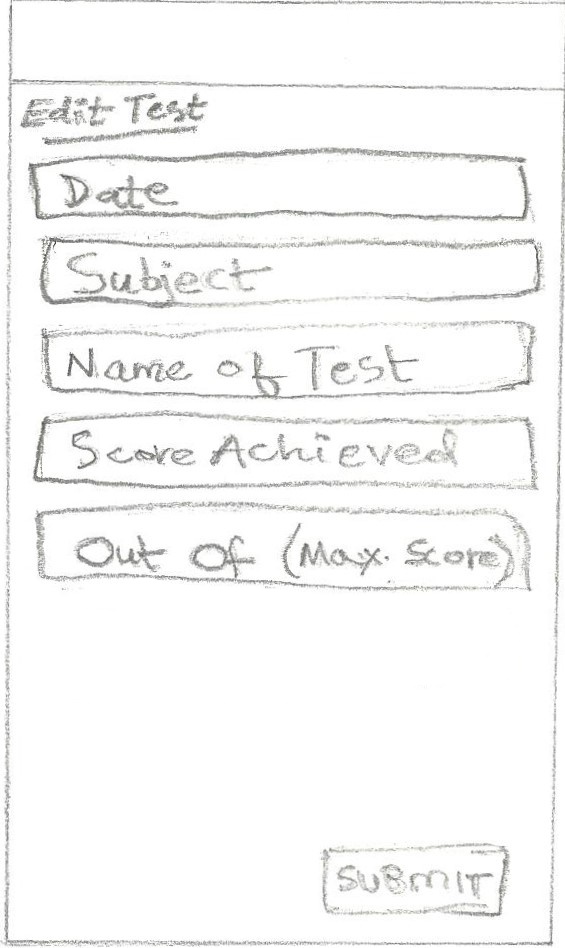 Edit Test
Date
Subject
Name of Test
Score Achieved
Out Of (Max. Score)
SUBMIT